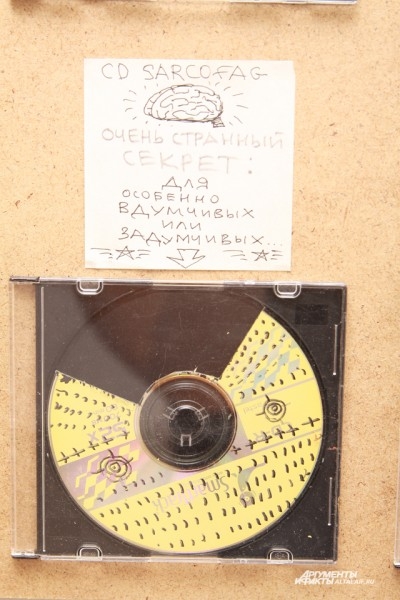 CD SARCOFAG
ОЧЕНЬ СТРАННЫЙ
СЕКРЕТ:
ДЛЯ
ОСОБЕННО
ВДУМЧИВЫХ
ИЛИ
ЗАДУМЧИВЫХ...
АРГУМЕНТЫ
И ФАКТЫ ALTAI.AIF.RU